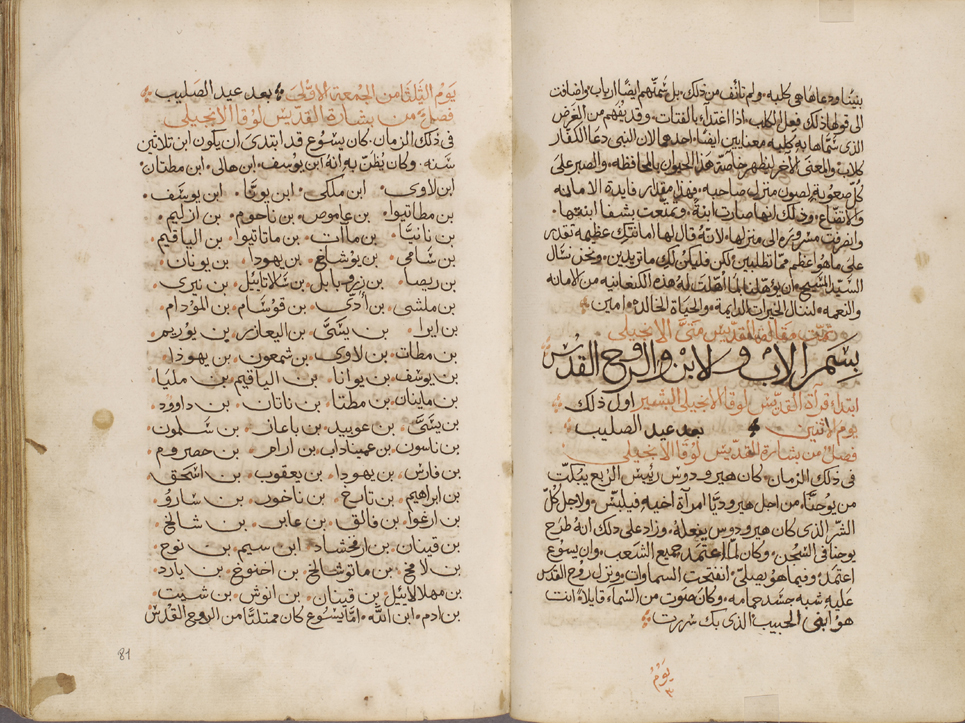 بيتنا ودعاها هي كلبه ولم تأنف من ذلك بل شمتهم ايضًا ارباب واضافت
الى قولها ذلك فعل الكلاب اذا اغتدا بالفتات وقد نفهم من الغرض
الذي سماها به كلبه معنايين ايضًا احدهما لان النبي دعا الكفار
كلاب والمعنى الاخر ليظهر خاصة هذا الحيوان بالمحافظه والصبر على
كل صعوبه لصون منزل صاحبه فهذا مقدار فايدة الامانه
والاتضاع وذلك انها صارت ابنة وتمتعت بشفا ابنتها
وانصرفت مسرورة الى منزلها لانه قال لها امانتك عظيمه تقدر
على ما هو اعظم مما تطلبين لكن فليكن لك ما تريدين ونحن نسال
السيد المسيح ان يؤهلنا لما اهلت له هذه الكنعانيه من الامانه
والنعمه لننال الخيرات الدايمة والحياة الخالدة امين
القديس متى الانجيلي
بسم الاب والابن والروح القدس
ابتداء قرآة القديس لوقا الانجيلي البشير اول ذلك
يوم الاثنين بعد عيد الصليب
فصل من بشارة القديس لوقا الانجيلي
في ذلك الزمان كان هيرودوس رئيس الربع يبكت
من يوحنا من اجل هيروديا امرآة اخيه فيلبس ولاجل كل
الشر الذي كان هيرودوس يفعله وزاد على ذلك انه طرح
يوحنا في السجن وكان لما اعتمد جميع الشعب وان يسوع
اعتمد وفيما هو يصلي انفتحت السماوات ونزل روح القدس
عليه شبه جسد حمامه وكان صوت من السماء قايلاً انت
هو ابني الحبيب الذي بك سررت
يوم
٣
يوم الثلثا من الجمعة الاولى بعد عيد الصليب
فصل من بشارة القديس لوقا الانجيلي
في ذلك الزمان كان يسوع قد ابتدى ان يكون ابن ثلاثين
سنه وكان يظن به انه ابن يوسف ابن هالى ابن مطتان
ابن لاوى ابن ملكى ابن يونا ابن يوسف
بن مطاتيوا بن عاموص بن ناحوم بن ازليم
بن نانيا بن ماآت بن ماتاتيوا بن الياقيم
بن شامى بن يوشاخ بن يهودا بن يونان
بن ريصا بن زروبابل بن شلاتاييل بن نيرى
بن ملشى بن أدى بن قوسام بن المودام
بن ايرا بن يسى بن اليعازر بن يوريم
بن مطات بن لاوى بن شمعون بن يهوذا
بن يوسف بن يوانا بن الياقيم بن مليا
بن ماينان بن مطتا بن ناتان بن داوود
بن يسى بن عوبيد بن باعاز بن سلمون
بن ناسون بن عميناداب بن ارام بن حصروم
بن فارس بن يهودا بن يعقوب بن اسحق
بن ابراهيم بن تارخ بن ناخور بن ساروُ
بن ارغوا بن فالق بن عابر بن شالخ
بن قينان بن ارفخشاد ابن سيم بن نوح
بن لامخ بن ماتوشالخ بن اخنوخ بن يارد
بن مهلالاييل بن قينان بن انوش بن شيت
بن ادم ابن الله امّا يسوع كان ممتلئاً من الروح القدس
81